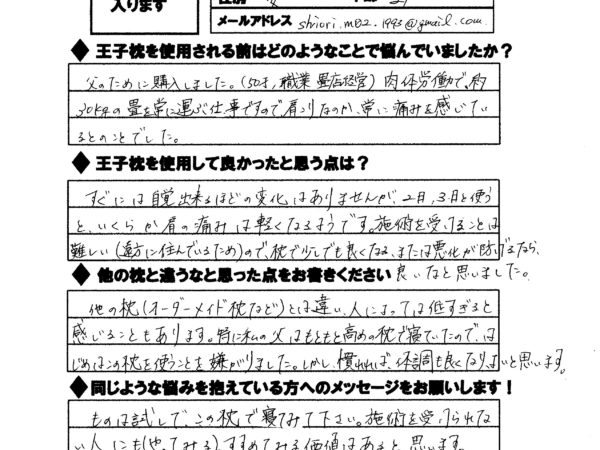 入ります
メールアドレス shiori.m02.1993@gmail.com
◆ 王子枕を使用される前はどのようなことで悩んでいましたか?
父のために購入しました。(50才, 職業 畳店経営) 肉体労働で、約
30kgの畳を常に運ぶ仕事ですので肩こりなのか、常に痛みを感じてい
るとのことでした。
◆ 王子枕を使用して良かったと思う点は?
すぐには自覚出来るほどの変化はありませんが、2日、3日と使う
と、いくらか肩の痛みは軽くなるようです。施術を受けることは
難しい(遠方に住んでいるため)ので、枕で少しでも良くなる、または悪化が防げるなら、
良いなと思いました。
◆ 他の枕と違うなと思った点をお書きください
他の枕(オーダーメイド枕など)とは違い、人によっては低すぎると
感じることもあります。特に私の父はもともと高めの枕で寝ていたので、は
じめはこの枕を使うことを嫌がりました。しかし、慣れれば、体調も良くなりよいと思います。
◆ 同じような悩みを抱えている方へのメッセージをお願いします!
ものは試しで、この枕で寝てみて下さい。施術を受けられな
い人にも(やってみる)、すすめてみる価値はあると思います。